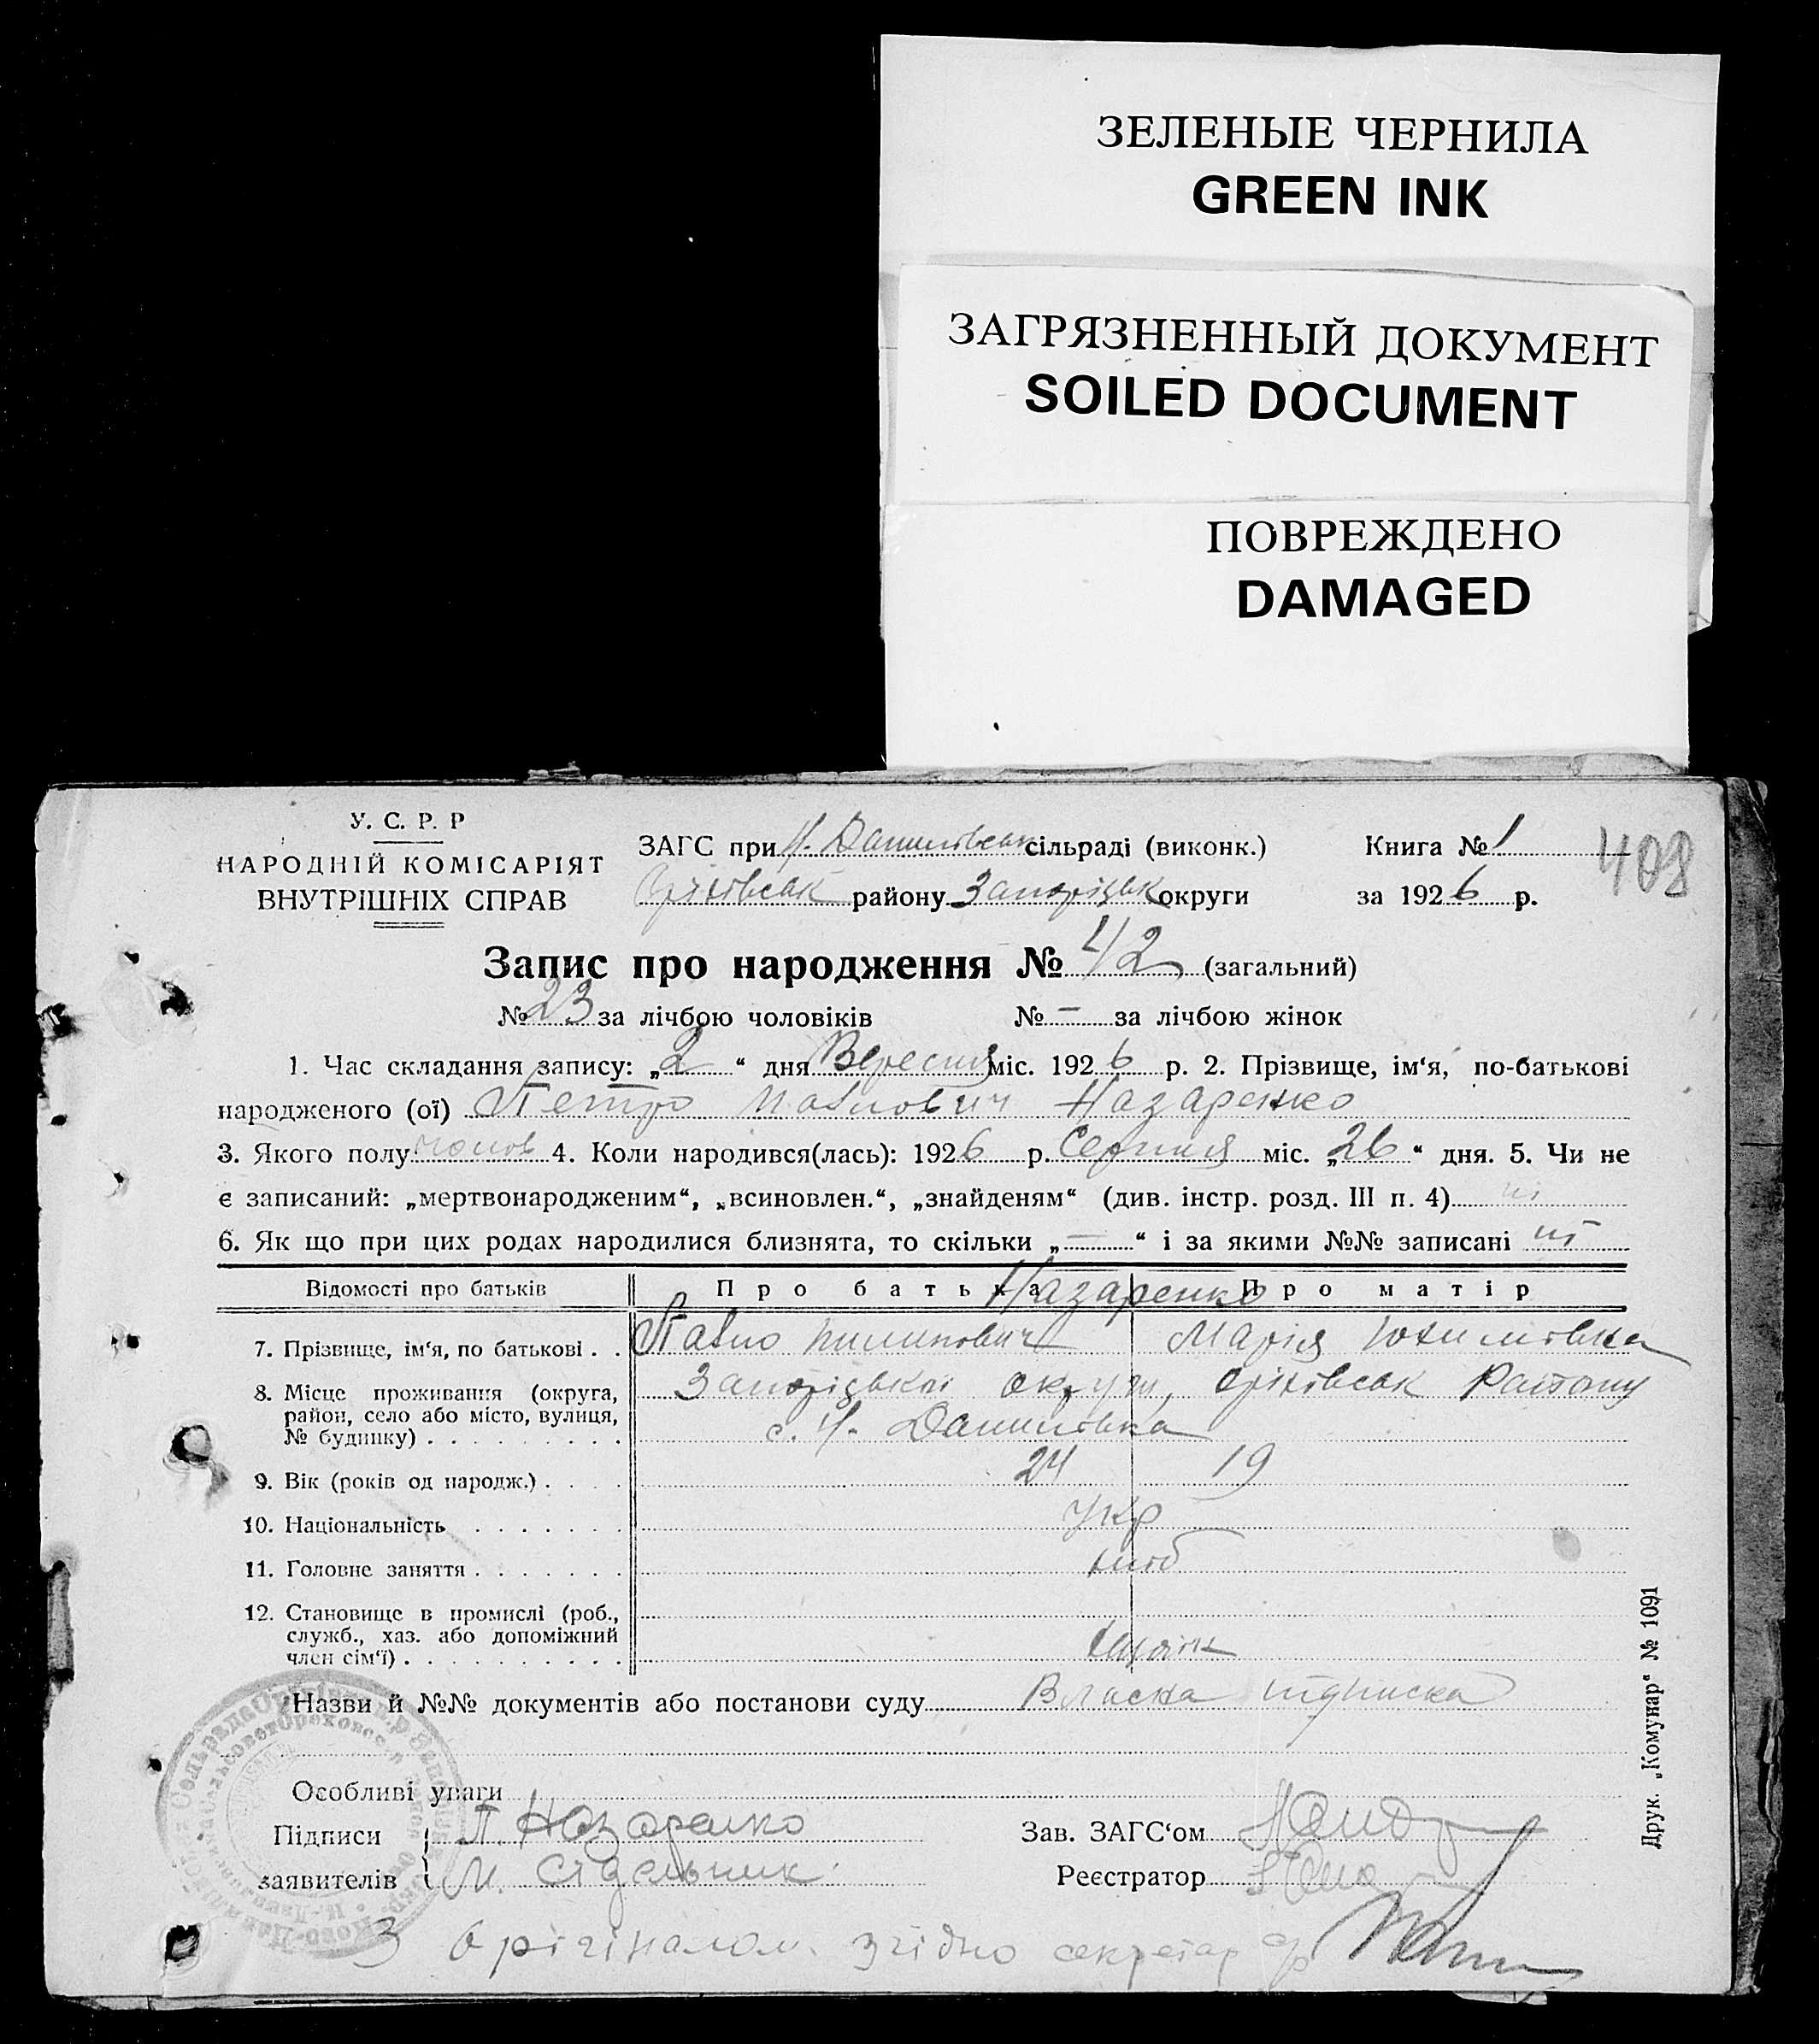 ЗЕЛЕНЫЕ ЧЕРНИЛА
GREEN INK
ЗАГРЯЗНЕННЫЙ ДОКУМЕНТ
SOILED DOCUMENT
ПОВРЕЖДЕНО
DAMAGED
У. С. Р. Р
НАРОДНІЙ КОМІСАРІЯТ
ВНУТРІШНІХ СПРАВ
ЗАГС при Н. Данилівськ сільраді (виконк.)
Оріхівськ району Запоріцьк округи
Книга № 1
за 1926 р.
408
Запис про народження № 42 (загальний)
№ 23 за лічбою чоловіків № — за лічбою жінок
1. Час складання запису: „2“ дня Вересня міс. 1926 р. 2. Прізвище, ім‘я, по-батькові
народженого (ої) Петро Павлович Назаренко
3. Якого полу чолов 4. Коли народився(лась): 1926 р. Серпня міс. „26“ дня. 5. Чи не
є записаний: „мертвонародженим“, „всиновлен.“, „знайденям“ (див. інстр. розд. III п. 4) ні
6. Як що при цих родах народилися близнята, то скільки „—“ і за якими №№ записані ні
Відомості про батьків Про батька Про матір
Назаренко
7. Прізвище, ім‘я, по батькові . . Павло Пилипович Марія Юхимівна
8. Місце проживання (округа, район, село або місто, вулиця, № будинку) . . . . Запоріцької округи, Оріхівськ Району
с. Н. Данилівка
9. Вік (років од народж.) . . . . 24 19
10. Національність . . . . . . . Укр
11. Головне заняття . . . . . . . хліб
12. Становище в промислі (роб.,
служб., хаз. або допоміжний
член сім‘ї) . . . . . . . . . .
Назви й №№ документів або постанови суду Власна підписка
Особливі уваги
Підписи заявителів П. Назаренко
М. Сідельник
Зав. ЗАГС‘ом
Реєстратор
З орігіналом згідно секретар с/р
Друк. „Комунар“ № 1091